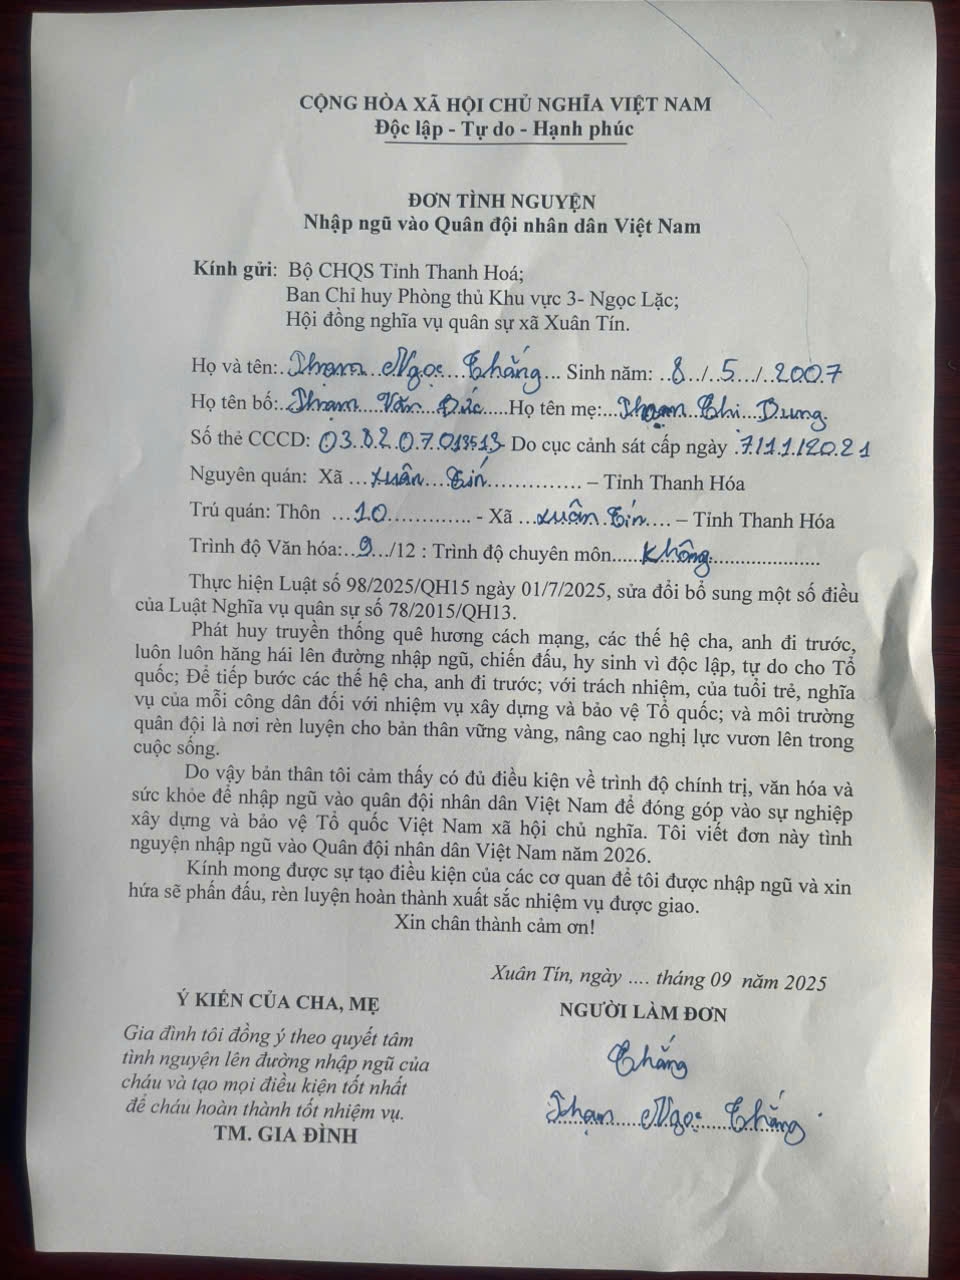 CỘNG HÒA XÃ HỘI CHỦ NGHĨA VIỆT NAM
Độc lập - Tự do - Hạnh phúc
ĐƠN TÌNH NGUYỆN
Nhập ngũ vào Quân đội nhân dân Việt Nam
Kính gửi: Bộ CHQS Tỉnh Thanh Hoá;
Ban Chỉ huy Phòng thủ Khu vực 3- Ngọc Lặc;
Hội đồng nghĩa vụ quân sự xã Xuân Tín.
Họ và tên:..Phạm...Ngọc...Thắng... Sinh năm: ..8../..5.../..2007
Họ tên bố:..Phạm...Văn...Đức.....Họ tên mẹ:...Phạm..Thị..Dung.
Số thẻ CCCD: 038207013513 Do cục cảnh sát cấp ngày .7/11/2021
Nguyên quán: Xã ...Xuân...Tín................ – Tỉnh Thanh Hóa
Trú quán: Thôn ...10.............. - Xã ...Xuân.Tín.... – Tỉnh Thanh Hóa
Trình độ Văn hóa:..9.../12 : Trình độ chuyên môn.....Không....................
Thực hiện Luật số 98/2025/QH15 ngày 01/7/2025, sửa đổi bổ sung một số điều
của Luật Nghĩa vụ quân sự số 78/2015/QH13.
Phát huy truyền thống quê hương cách mạng, các thế hệ cha, anh đi trước,
luôn luôn hăng hái lên đường nhập ngũ, chiến đấu, hy sinh vì độc lập, tự do cho Tổ
quốc; Để tiếp bước các thế hệ cha, anh đi trước; với trách nhiệm, của tuổi trẻ, nghĩa
vụ của mỗi công dân đối với nhiệm vụ xây dựng và bảo vệ Tổ quốc; và môi trường
quân đội là nơi rèn luyện cho bản thân vững vàng, nâng cao nghị lực vươn lên trong
cuộc sống.
Do vậy bản thân tôi cảm thấy có đủ điều kiện về trình độ chính trị, văn hóa và
sức khỏe để nhập ngũ vào quân đội nhân dân Việt Nam để đóng góp vào sự nghiệp
xây dựng và bảo vệ Tổ quốc Việt Nam xã hội chủ nghĩa. Tôi viết đơn này tình
nguyện nhập ngũ vào Quân đội nhân dân Việt Nam năm 2026.
Kính mong được sự tạo điều kiện của các cơ quan để tôi được nhập ngũ và xin
hứa sẽ phấn đấu, rèn luyện hoàn thành xuất sắc nhiệm vụ được giao.
Xin chân thành cảm ơn!
Xuân Tín, ngày .... tháng 09 năm 2025
Ý KIẾN CỦA CHA, MẸ
Gia đình tôi đồng ý theo quyết tâm
tình nguyện lên đường nhập ngũ của
cháu và tạo mọi điều kiện tốt nhất
để cháu hoàn thành tốt nhiệm vụ.
TM. GIA ĐÌNH
NGƯỜI LÀM ĐƠN
Thắng
Phạm Ngọc Thắng